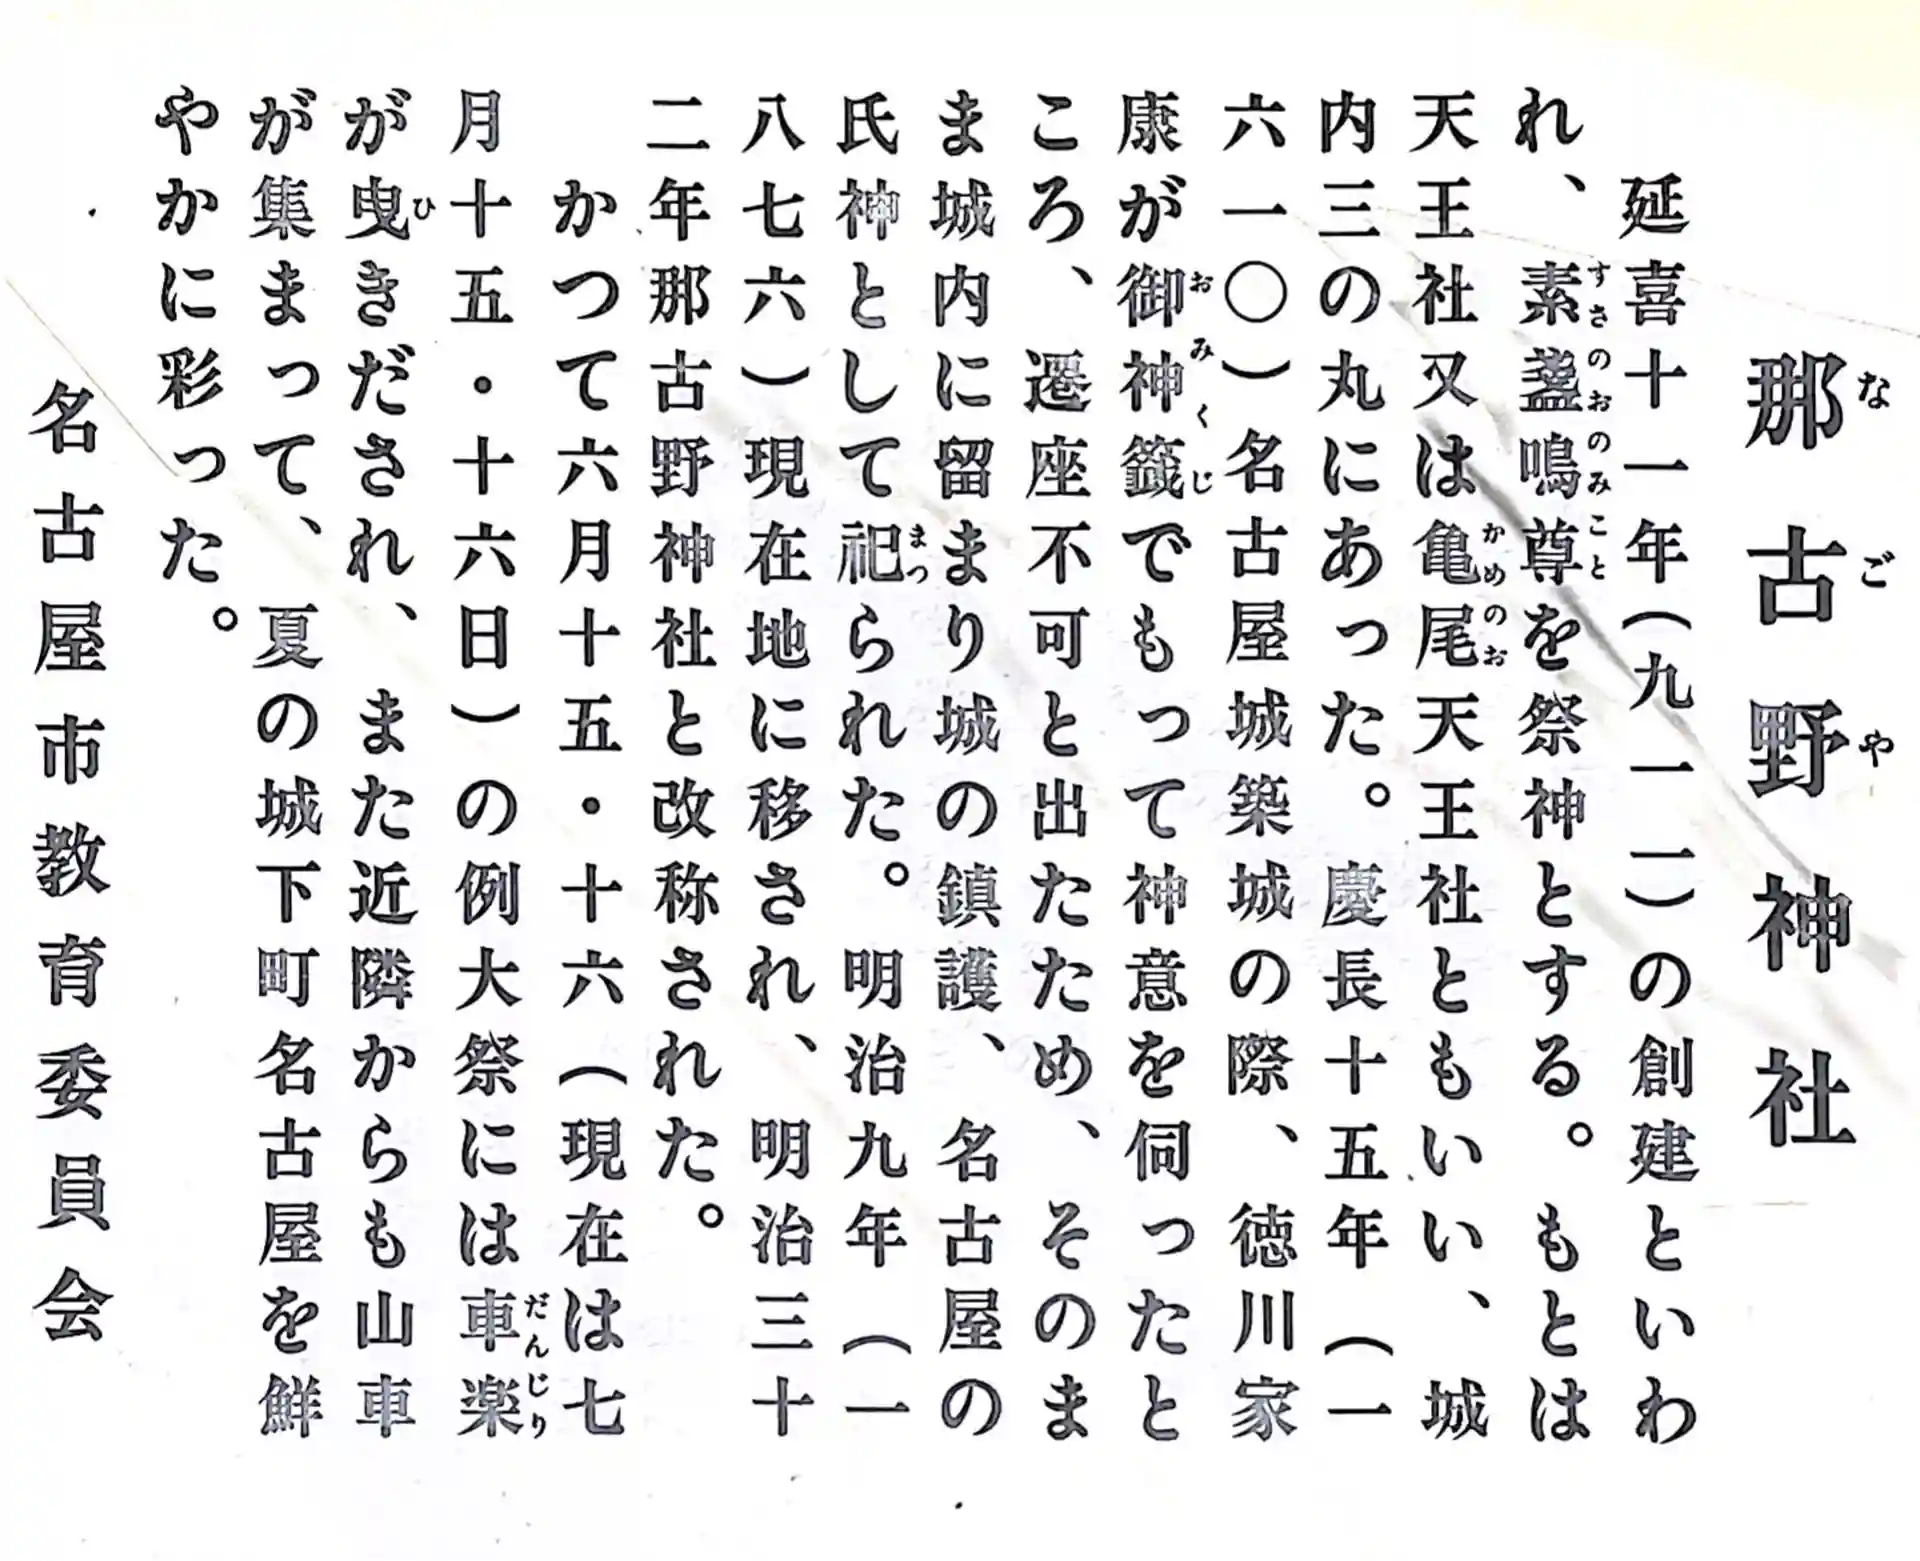 那古野神社
延喜十一年（九一一）の創建といわ
れ、素盞鳴尊を祭神とする。もとは
天王社又は亀尾天王社ともいい、城
内三の丸にあった。慶長十五年（一
六一〇）名古屋城築城の際、徳川家
康が御神籤でもって神意を伺ったと
ころ、遷座不可と出たため、そのま
ま城内に留まり城の鎮護、名古屋の
氏神として祀られた。明治九年（一
八七六）現在地に移され、明治三十
二年那古野神社と改称された。
かつて六月十五・十六（現在は七
月十五・十六日）の例大祭には車楽
が曳きだされ、また近隣からも山車
が集まって、夏の城下町名古屋を鮮
やかに彩った。
名古屋市教育委員会